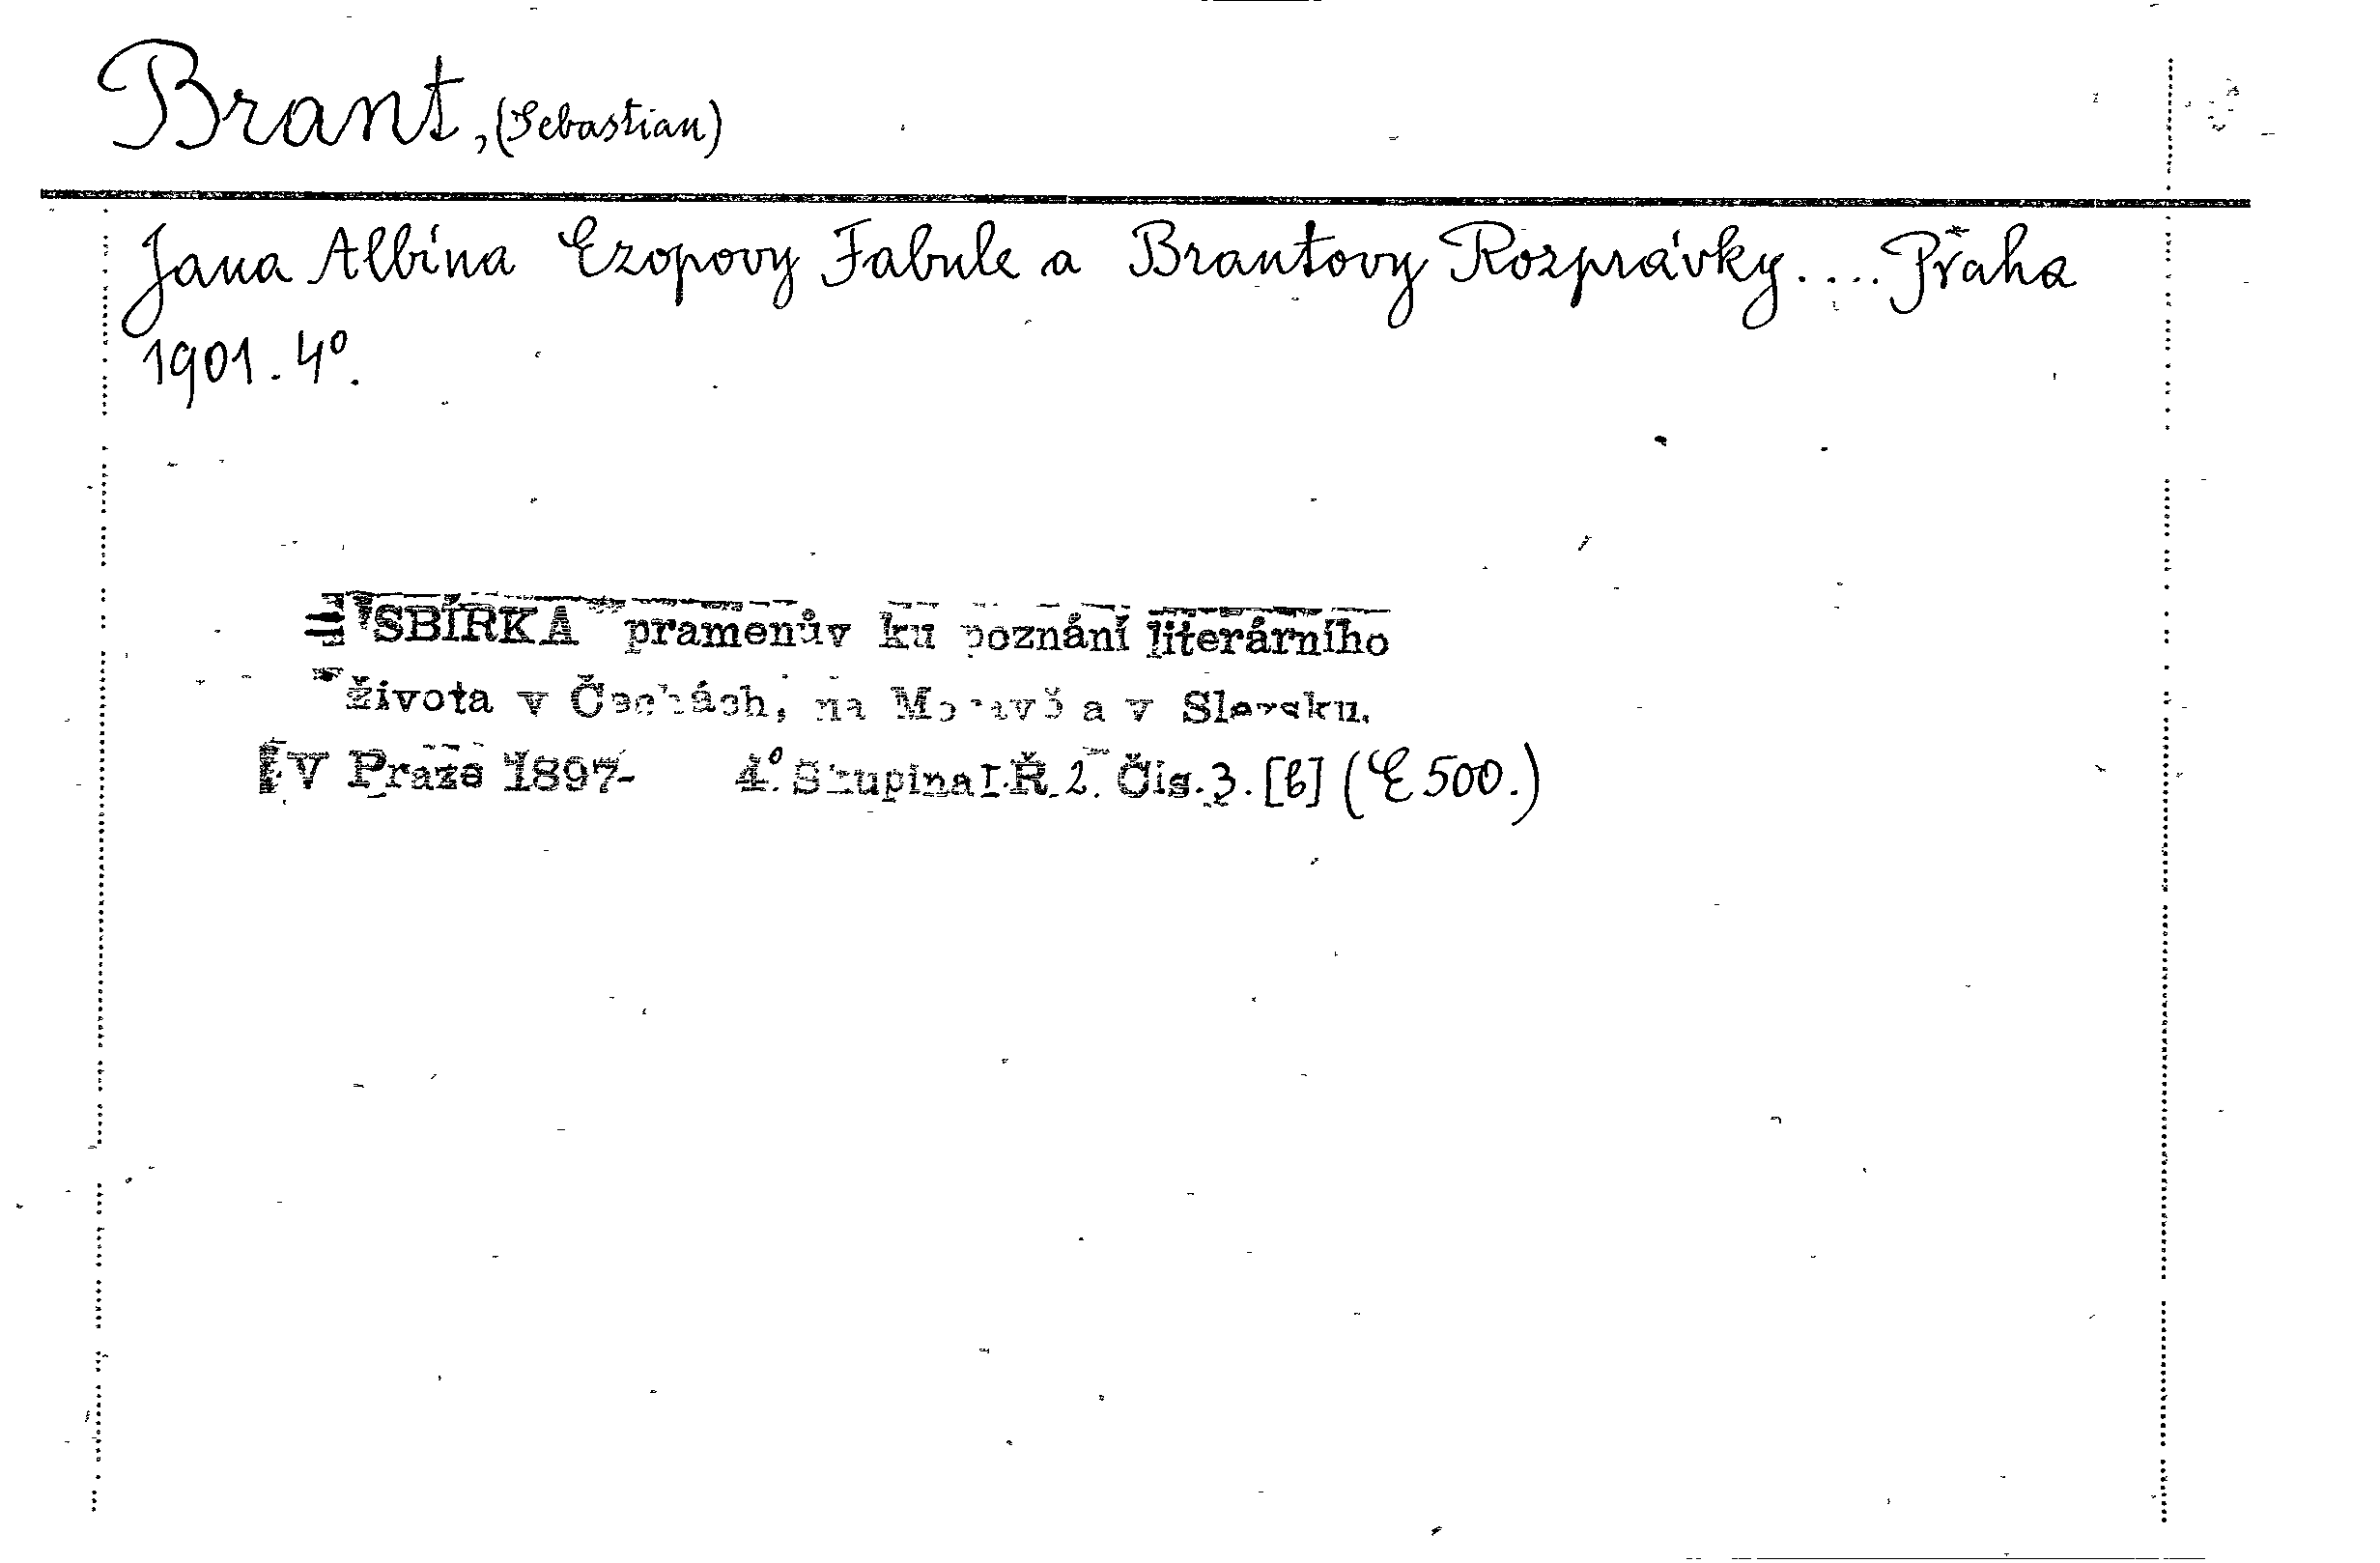 Brant, (Sebastian)
Jana Albína Ezopovy Fabule a Brantovy Rozprávky.... Praha
1901. 4º.
= SBÍRKA pramenův ku poznání literárního
života v Čechách, na Moravě a v Slezsku.
V Praze 1897- 4º. Skupina I. Ř. 2. Čís. 3. [b] (E 500.)